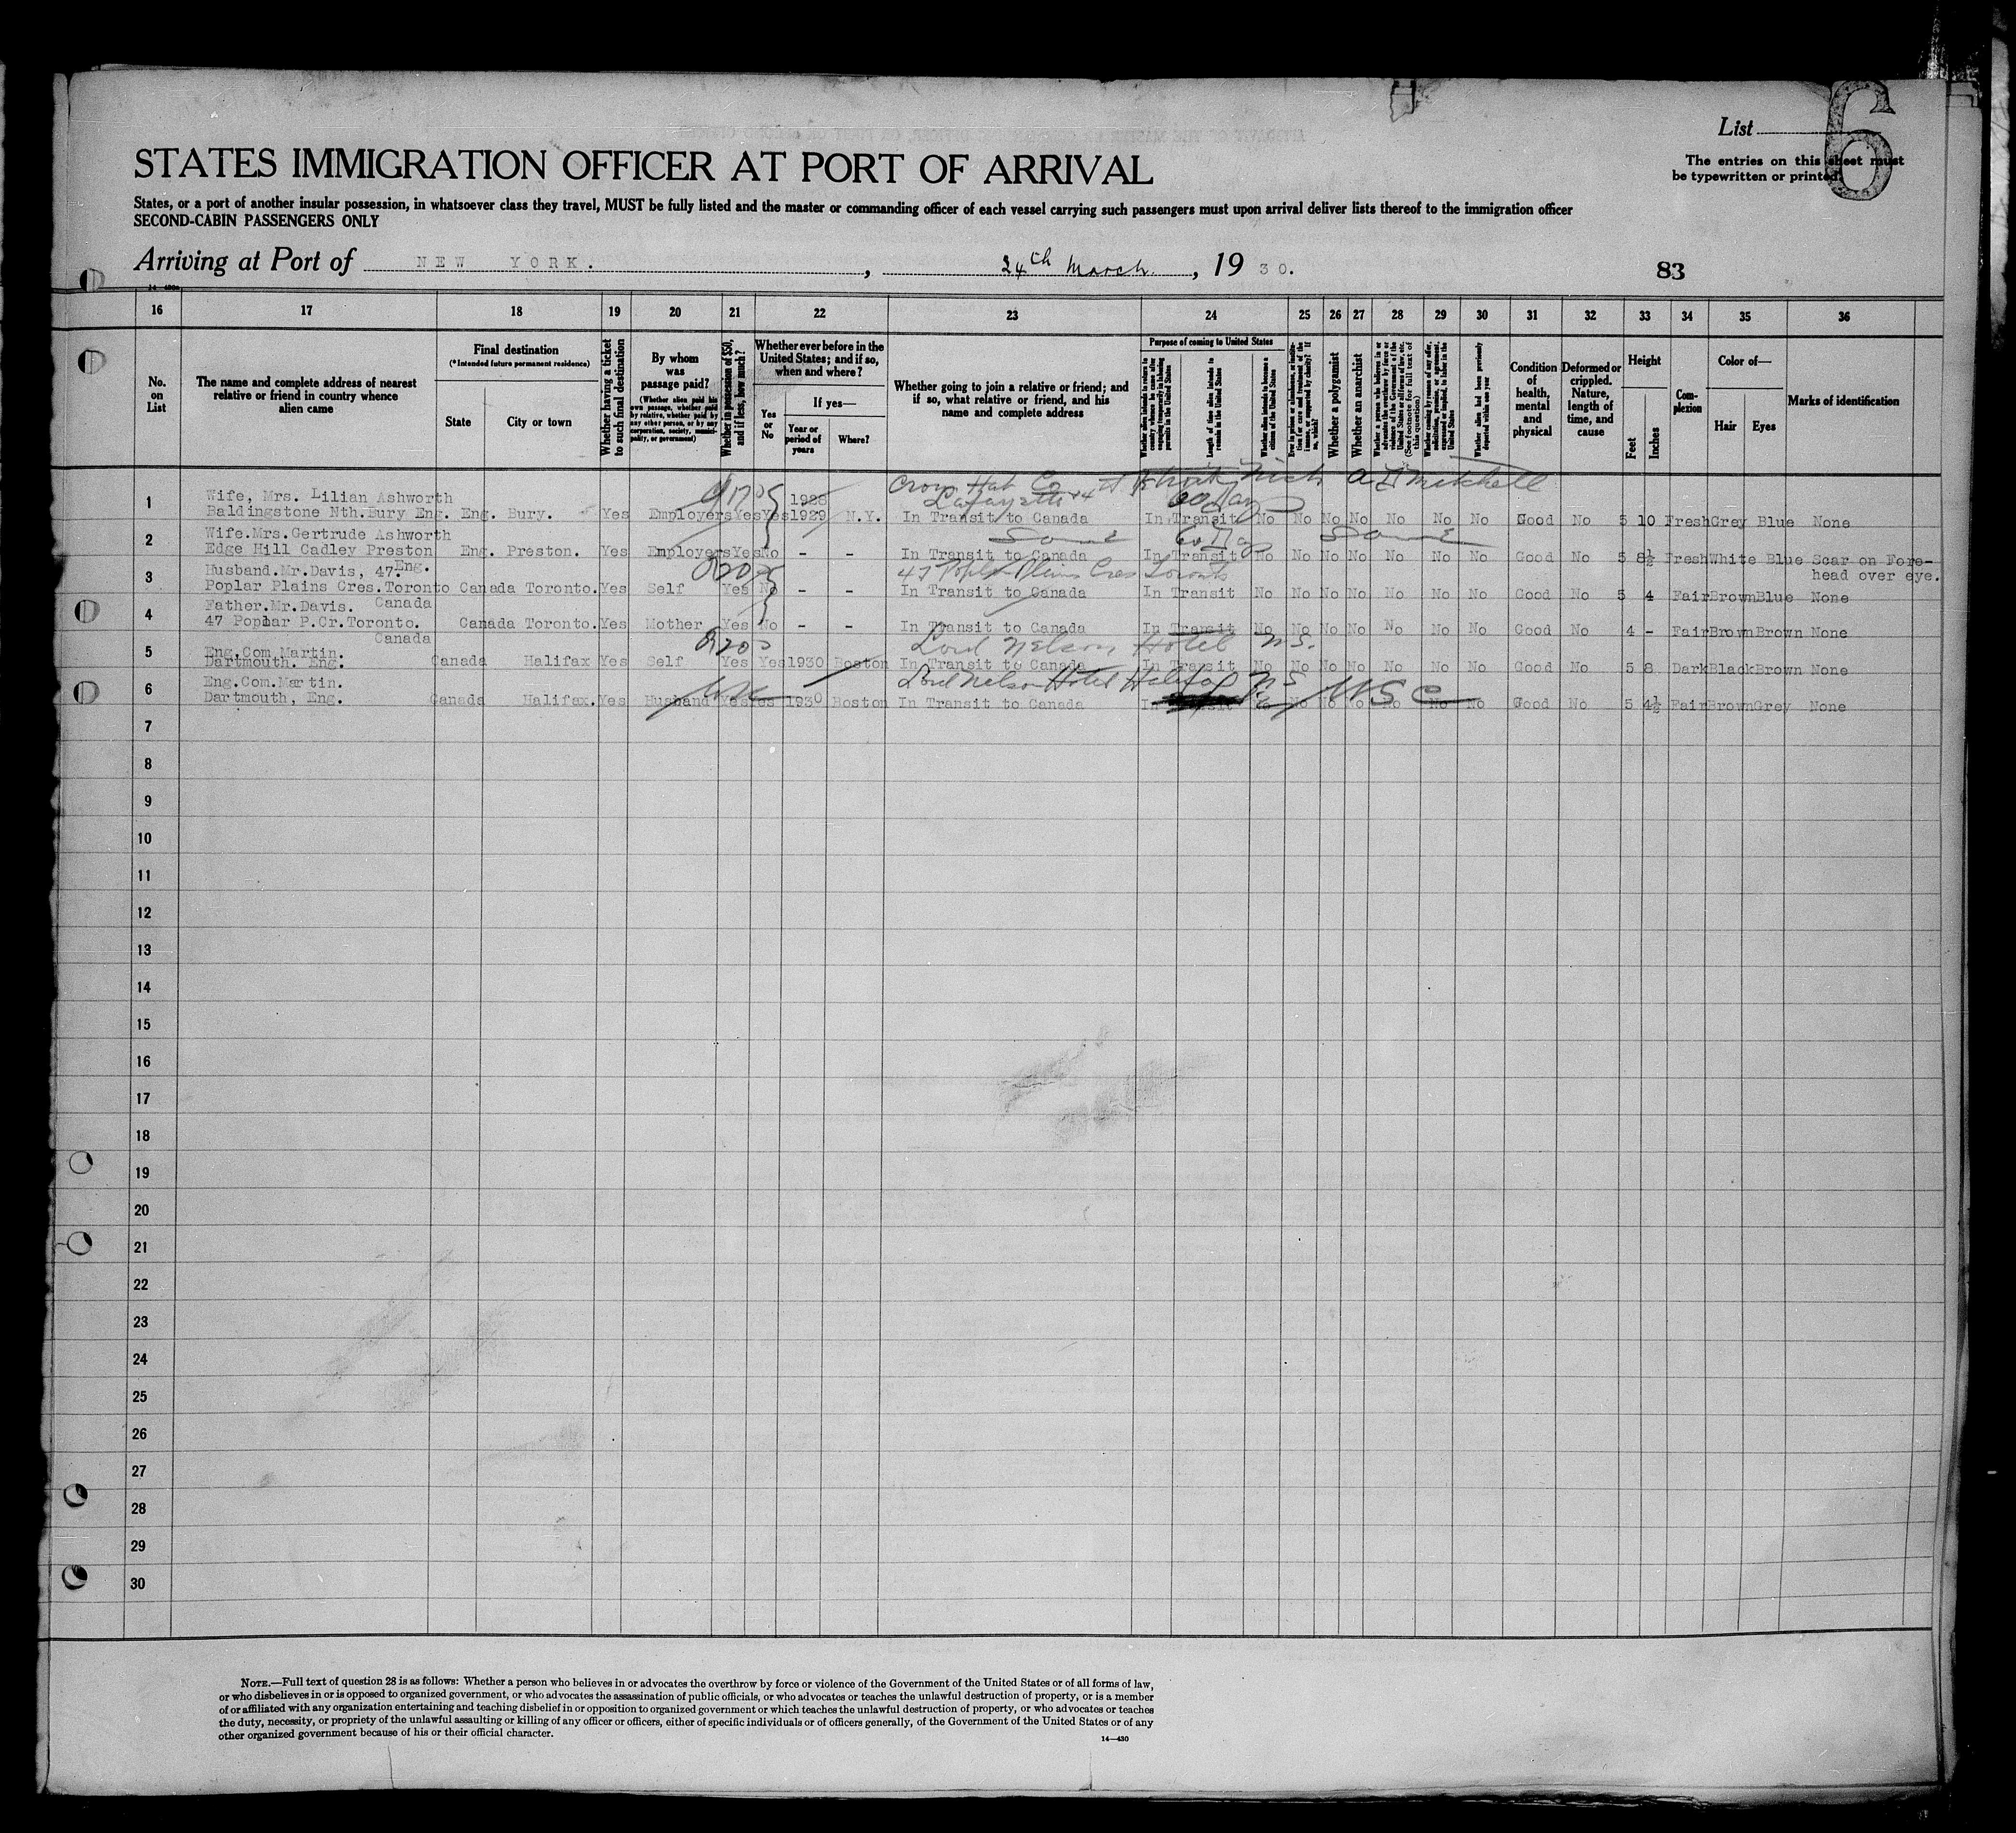 List 6
STATES IMMIGRATION OFFICER AT PORT OF ARRIVAL
The entries on this sheet must
be typewritten or printed.
States, or a port of another insular possession, in whatsoever class they travel, MUST be fully listed and the master or commanding officer of each vessel carrying such passengers must upon arrival deliver lists thereof to the immigration officer
SECOND-CABIN PASSENGERS ONLY
Arriving at Port of NEW YORK. , 24th March , 19 30.
83
16 17 18 19 20 21 22 23 24 25 26 27 28 29 30 31 32 33 34 35 36
No. on List
The name and complete address of nearest relative or friend in country whence alien came
Final destination
(*Intended future permanent residence)
State
City or town
Whether having a ticket to such final destination
By whom was passage paid?
(Whether alien paid his own passage, whether paid by relative, whether paid by any other person, or by any corporation, society, municipality, or government)
Whether in possession of $50, and if less, how much?
Whether ever before in the United States; and if so, when and where?
Yes or No
If yes—
Year or period of years
Where?
Whether going to join a relative or friend; and if so, what relative or friend, and his name and complete address
Purpose of coming to United States
Whether alien intends to return to country whence he came after engaging temporarily in laboring pursuits in the United States
Length of time alien intends to remain in the United States
Whether alien intends to become a citizen of the United States
Whether a polygamist
Whether an anarchist
Whether alien had been previously deported within one year
Condition of health, mental and physical
Deformed or crippled. Nature, length of time, and cause
Height
Feet
Inches
Complexion
Color of—
Hair
Eyes
Marks of identification
Crow Hat Co A D Mitchell
Lafayette 60 Day
1 Wife, Mrs. Lilian Ashworth 1928
Baldingstone Nth.Bury Eng. Eng. Bury. Yes Employers Yes Yes 1929 N.Y. In Transit to Canada In Transit No No No No No No No Good No 5 10 Fresh Grey Blue None
Same 60 Day Same
2 Wife.Mrs.Gertrude Ashworth
Edge Hill Cadley Preston Eng. Preston. Yes Employers Yes No - - In Transit to Canada In Transit No No No No No No No Good No 5 8½ Fresh White Blue Scar on Fore-
head over eye.
Eng.
47 Poplar Plains Cres Toronto
3 Husband.Mr.Davis, 47.
Poplar Plains Cres.Toronto Canada Toronto. Yes Self Yes No - - In Transit to Canada In Transit No No No No No No No Good No 5 4 Fair Brown Blue None
Canada
4 Father.Mr.Davis.
47 Poplar P.Cr.Toronto. Canada Toronto. Yes Mother Yes No - - In Transit to Canada In Transit No No No No No No No Good No 4 - Fair Brown Brown None
Canada
Lord Nelson Hotel N.S.
5 Eng.Com.Martin.
Dartmouth. Eng. Canada Halifax Yes Self Yes Yes 1930 Boston In Transit to Canada In Transit No No No No No No No Good No 5 8 Dark Black Brown None
Lord Nelson Hotel Halifax N S
6 Eng.Com.Martin.
Dartmouth, Eng. Canada Halifax. Yes Husband Yes Yes 1930 Boston In Transit to Canada In No No No No No No Good No 5 4½ Fair Brown Grey None
USC
7
8
9
10
11
12
13
14
15
16
17
18
19
20
21
22
23
24
25
26
27
28
29
30
NOTE.—Full text of question 28 is as follows: Whether a person who believes in or advocates the overthrow by force or violence of the Government of the United States or of all forms of law,
or who disbelieves in or is opposed to organized government, or who advocates the assassination of public officials, or who advocates or teaches the unlawful destruction of property, or is a member
of or affiliated with any organization entertaining and teaching disbelief in or opposition to organized government or which teaches the unlawful destruction of property, or who advocates or teaches
the duty, necessity, or propriety of the unlawful assaulting or killing of any officer or officers, either of specific individuals or of officers generally, of the Government of the United States or of any
other organized government because of his or their official character.
14—430